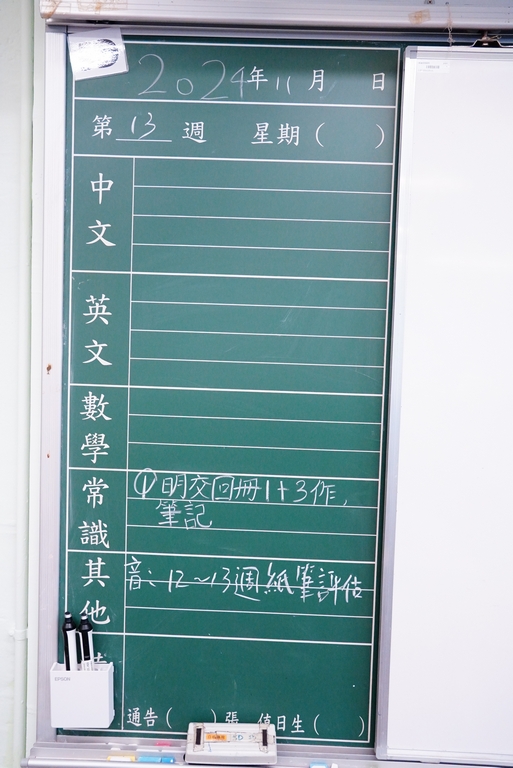 2024年 11 月 日
第 13 週 星期 ( )
中文
英文
數學
常識
①明交回冊1+3作,
筆記
其他
音: 12~13週紙筆評估
EPSON
通告 ( ) 張 值日生 ( )